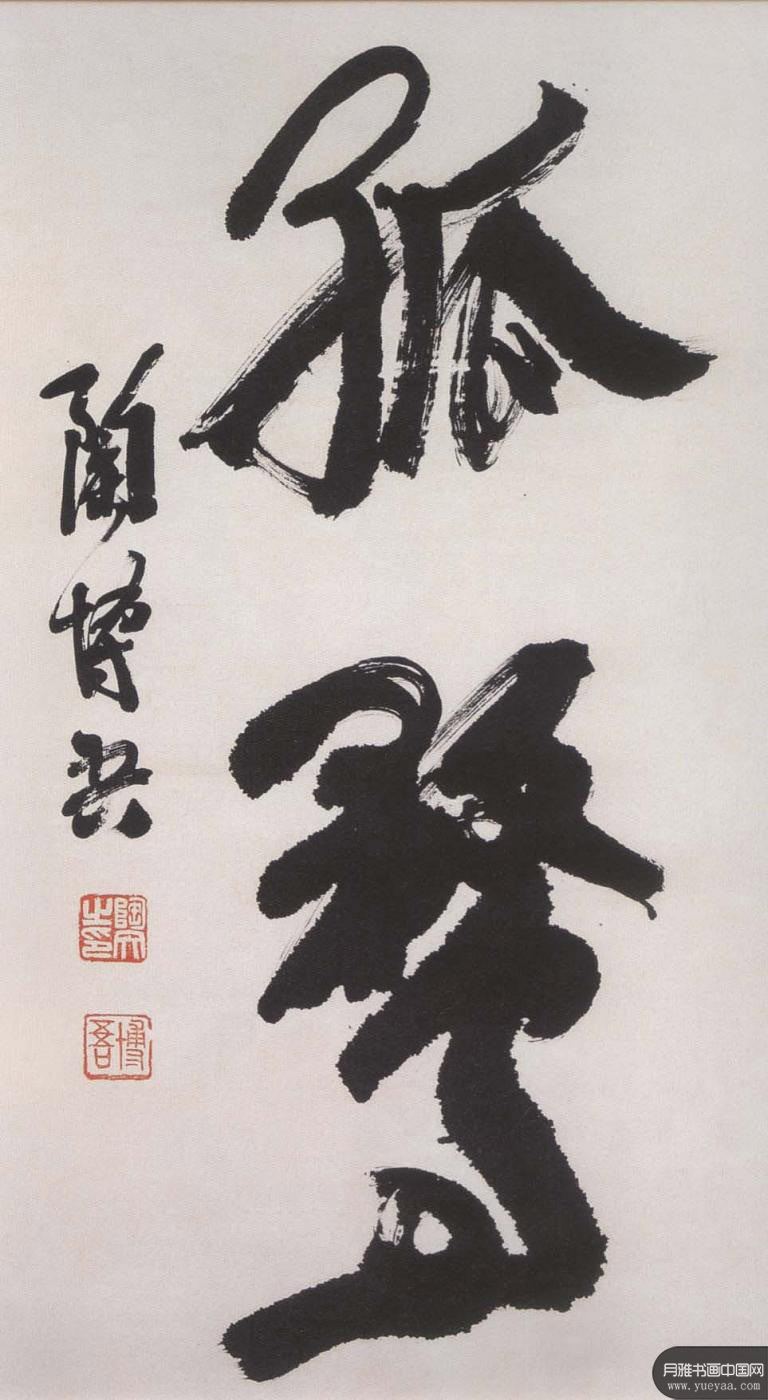 孤鶩
陶博吾
陶文之印
博吾
月雅书画中国网
www.yueyaa.com